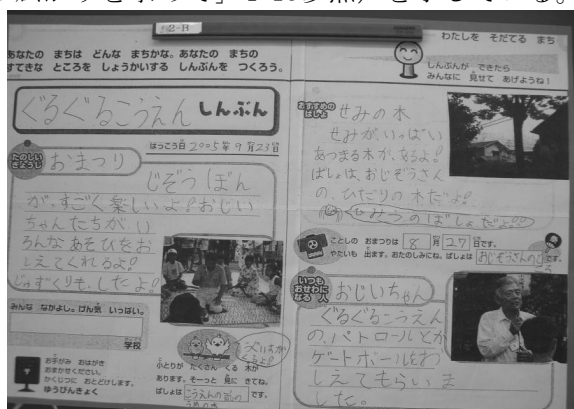 の木のまわりをあって」2-23参照)を示している。
2-B
あなたの まちは どんな まちかな。あなたの まちの
すてきな ところを しょうかいする しんぶんを つくろう。
ぐるぐるこうえん しんぶん
はっこう日 2005年 9月23日
たのしい
ぎょうじ
おまつり
じぞうぼん
が、すごく楽しいよ!おじい
ちゃんたちが、い
ろんなあそびをお
しえてくれるよ!
じゅずくりも、したよ!
みんな なかよし。げん気 いっぱい。
学校
お手がみ おはがき
おまかせください。
かくじつに おとどけします。
ゆうびんきょく
小とりが たくさん くる 木が
あります。そーっと 見に きてね。
ばしょは こうえんの前の です。
わたしを そだてる まち
しんぶんが できたら
みんなに 見せて あげようね!
おすすめの
ばしょ
せみの木
せみが、いっぱい
あつまる木が、あるよ!
ばしょは、おじぞうさん
の、ひだりの木だよ!
ひみつのばしょだよ!!
ことしの おまつりは 8月27日です。
やたいも 出ます。おたのしみにね。ばしょは おじぞうさんのとこ です。
いつも
おせわに
なる 人
おじいちゃん
ぐるぐるこうえん
の、パトロールとか
ゲートボールをお
しえてもらいま
した。